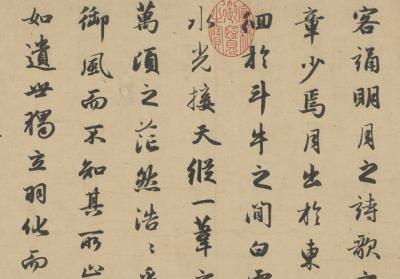 客誦明月之詩歌
章少焉月出於東
徊於斗牛之間白露
水光接天縱一葦
萬頃之茫然浩〻乎
御風而不知其所止
如遺世獨立羽化而